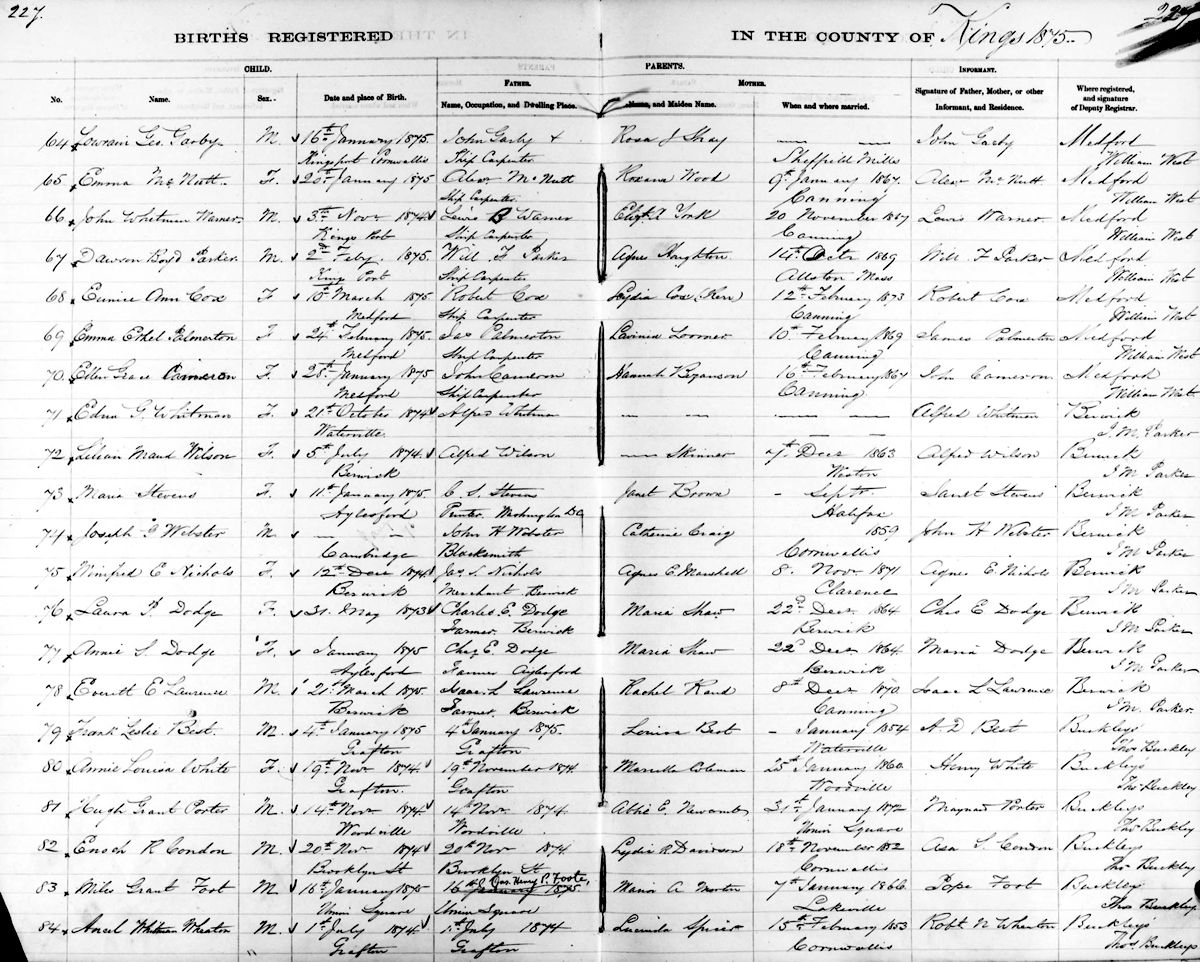 227.
BIRTHS REGISTERED
IN THE COUNTY OF Kings 1875.
CHILD. PARENTS. INFORMANT.
FATHER. MOTHER.
No. Name. Sex. Date and place of Birth. Name, Occupation, and Dwelling Place. Name, and Maiden Name. When and where married. Signature of Father, Mother, or other Informant, and Residence. Where registered, and signature of Deputy Registrar.
64 Geo. M. 16th January 1875. John + Rosa J — — John Medford
Kingsport Cornwallis Ship Carpenter Sheffield Mills William West
65 Emma McNutt. F. 20th January 1875 Alexr McNutt Roxana Wood 9th January 1867. Alexr McNutt Medford
Ship Carpenter Canning William West
66 John Whitman Warner M. 3rd Novr 1874 Lewis B Warner York 20 November 1867 Lewis Warner Medford
Kings Port Ship Carpenter Canning William West
67 Dawson Boyd Parker M. 2nd Feby. 1875. Will F Parker Agnes Houghton 14th Octr 1869 Will. F Parker Medford
Kings Port Ship Carpenter Allston Mass William West
68 Eunice Ann Cox F 10th March 1875 Robert Cox Lydia Cox (Kerr) 12th February 1873 Robert Cox Medford
Medford Ship Carpenter Canning William West
69 Emma Ethel Palmerton F. 24th February 1875. Jas Palmerton Lavinia Loomer 10th February 1869 James Palmerton Medford
Medford Ship Carpenter Canning William West
70 Ellen Grace Cameron F. 28th January 1875 John Cameron Hannah 16th February 1867 John Cameron Medford
Medford Ship Carpenter Canning William West
71 Edna G. Whitman F. 21st October 1874 Alfred Whitman — — — — Alfred Whitman Berwick
Waterville — — J. M. Parker
72 Lilian Maud Wilson F. 5th July 1874. Alfred Wilson — Skinner 7th Decr 1863 Alfred Wilson Berwick
Berwick Weston J M Parker
73 Maria Stevens F. 11th January 1875. C. S. Stevens Janet Brown - Septr. Janet Stevens Berwick
Aylesford Printer. Washington DC Halifax J M Parker
74 Joseph Webster M. — — John H Webster Catherine Craig 1859 John H Webster Berwick
Cambridge Blacksmith Cornwallis J M Parker
75 Minifred E Nichols F. 12th Decr 1874 Jas. S. Nichols Agnes E. Marshall 8. Novr 1871 Agnes E. Nichols Berwick
Berwick Merchant Berwick Clarence J M Parker
76 Laura Dodge F. 31. May 1873 Charles E. Dodge Maria Shaw 22d Decr 1864 Chas E Dodge Berwick
Farmer. Berwick Berwick J M Parker
77 Annie S. Dodge F. January 1875 Chas E. Dodge Maria Shaw 22d Decr 1864. Maria Dodge Berwick
Aylesford Farmer Aylesford Berwick J M Parker
78 Everett E Lawrence M. 21st March 1875. Isaac L Lawrence Rachel Rand 8th Decr 1870. Isaac L Lawrence Berwick
Berwick Farmer. Berwick Canning J M. Parker.
79 Frank Leslie Best. M. 4th January 1875 4th January 1875. Louisa Best - January 1854 A. D Best Buckleys
Grafton Grafton Waterville Thos Buckley
80 Annie Louisa White F. 19th Novr 1874. 19th November 1874. Coleman 25th January 1860. Henry White Buckleys
Grafton. Grafton Woodville Thos Buckley
81 Hugh Grant Porter M. 14th Novr 1874 14th Novr 1874. Abbie E. Newcomb 31st January 1872 Maynard Porter Buckleys
Woodville Woodville Union Square Thos Buckley
82 Enoch R Condon M. 20th Novr 1874 20th Novr 1874 Lydia R Davidson 18th November 1852 Asa S. Condon Buckleys
Brooklyn St Brooklyn St Cornwallis Thos Buckley
83 Miles Grant Foot M. 16th January 1875 16 January 1875 Henry P. Foote, Maria A 7th January 1866 Pope Foot Buckleys
Union Square Union Square Lakeville Thos Buckley
84 Ancel Whitman Wheaton M. 1st July 1874 1st July 1874 Lucinda Spicer 15th February 1853 Robt N Wheaton Buckleys
" Grafton Grafton Cornwallis Thos Buckleys